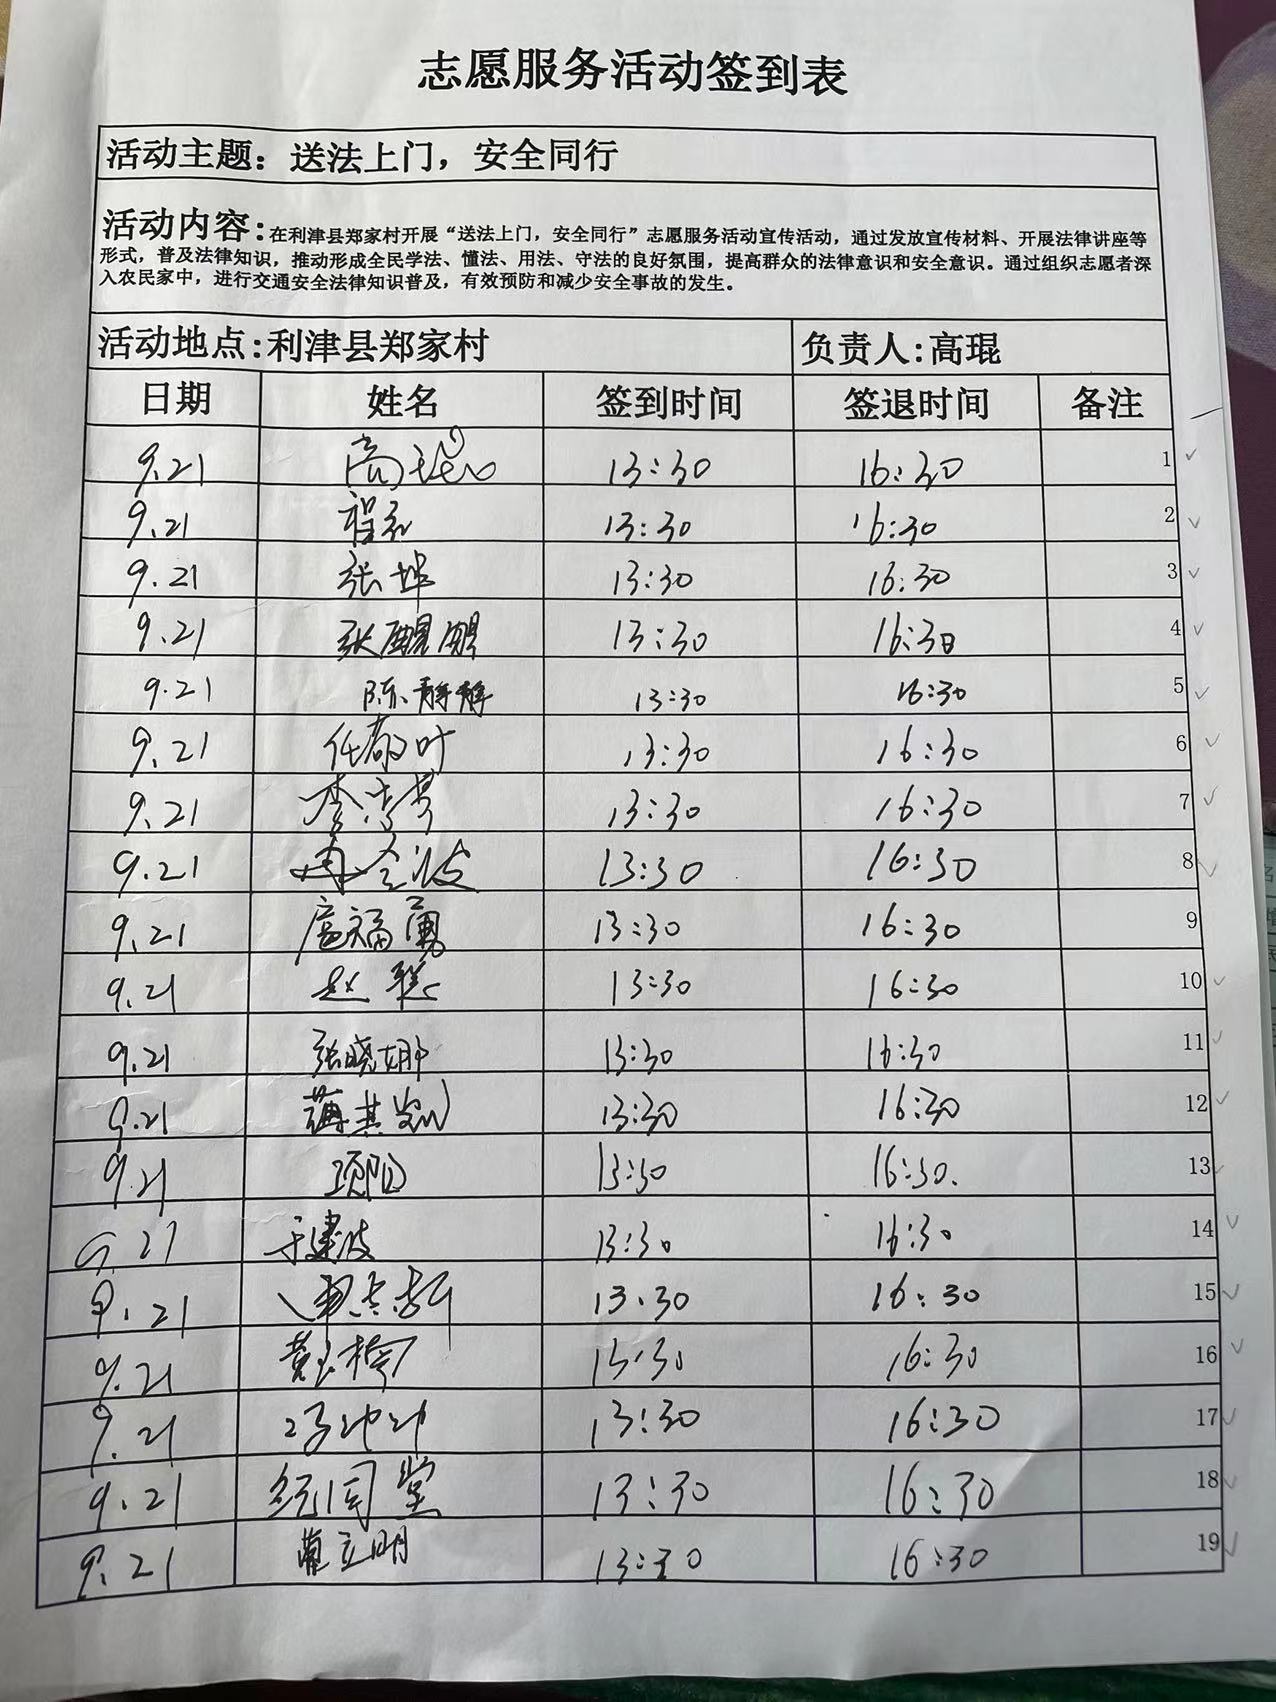 志愿服务活动签到表
活动主题：送法上门，安全同行
活动内容:在利津县郑家村开展“送法上门，安全同行”志愿服务活动宣传活动，通过发放宣传材料、开展法律讲座等
形式，普及法律知识，推动形成全民学法、懂法、用法、守法的良好氛围，提高群众的法律意识和安全意识。通过组织志愿者深
入农民家中，进行交通安全法律知识普及，有效预防和减少安全事故的发生。
活动地点:利津县郑家村 负责人:高琨
日期 姓名 签到时间 签退时间 备注
9.21 高琨 13:30 16:30 1
9.21 13:30 16:30 2
9.21 张坤 13:30 16:30 3
9.21 张醒醒 13:30 16:30 4
9.21 陈静静 13:30 16:30 5
9.21 任春叶 13:30 16:30 6
9.21 13:30 16:30 7
9.21 13:30 16:30 8
9.21 扈福勇 13:30 16:30 9
9.21 赵聪 13:30 16:30 10
9.21 张晓娜 13:30 16:30 11
9.21 13:30 16:30 12
9.21 项阳 13:30 16:30. 13
9.21 于建波 13:30 16:30 14
9.21 13.30 16:30 15
9.21 13:30 16:30 16
9.21 冯冲冲 13:30 16:30 17
9.21 纪同堂 13:30 16:30 18
9.21 13:30 16:30 19